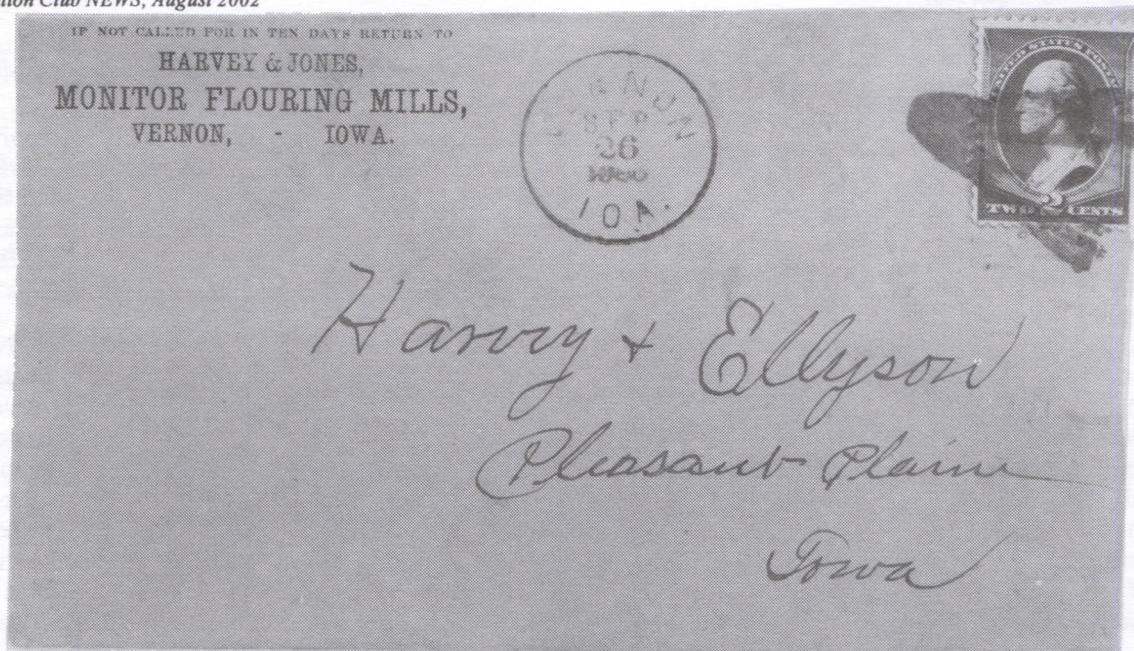 tion Club NEWS, August 2002
IF NOT CALLED FOR IN TEN DAYS RETURN TO
HARVEY & JONES,
MONITOR FLOURING MILLS,
VERNON, - IOWA.
SEP
26
IOA.
UNITED STATES POSTAGE
TWO 2 CENTS
Harvey + Ellyson
Pleasant Plaine
Iowa